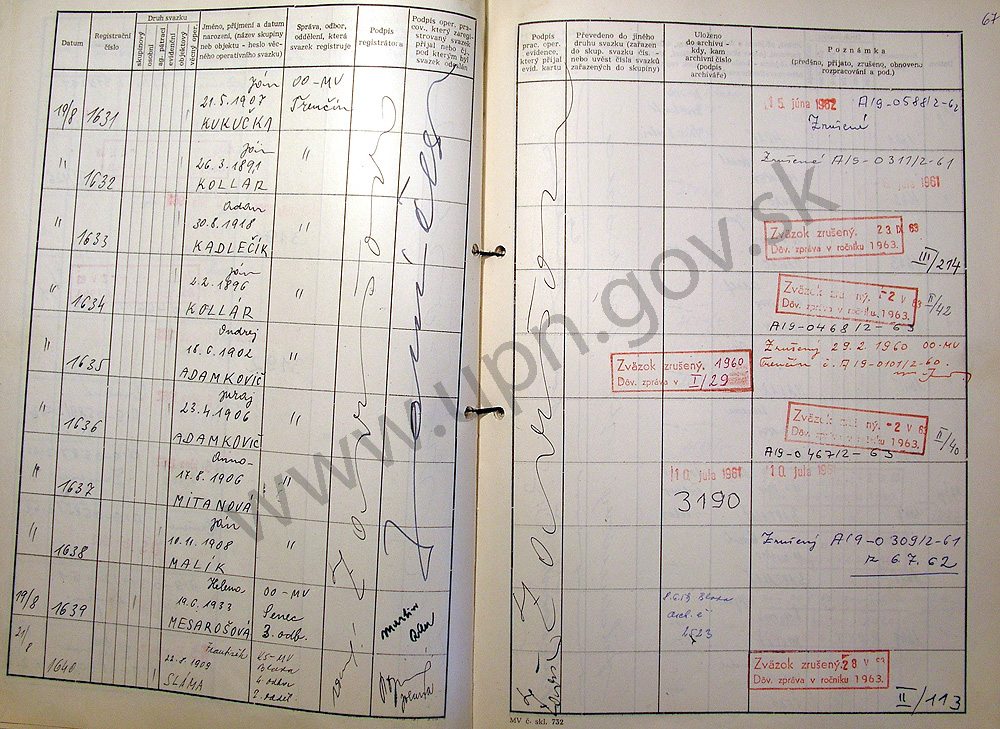 67
Datum
Registrační
číslo
Druh svazku
skupinový
osobní
ag. pátrací
evidenční
objektový
věcný oper.
Jméno, příjmení a datum
narození, (název skupiny
neb objektu - heslo věc-
ného operativního svazku)
Správa, odbor,
oddělení, která
svazek registruje
Podpis
registrátora
Podpis oper. pra-
cov., který zaregi-
strovaný svazek
přijal nebo čj.
pod kterým byl
svazek odeslán
Podpis
prac. oper.
evidence,
který přijal
evid. kartu
Převedeno do jiného
druhu svazku (zařazen
do skup. svazku čís. -
nebo uvést čísla svazků
zařazených do skupiny)
Uloženo
do archivu -
kdy, kam
archivní číslo
(podpis
archiváře)
Poznámka
(předáno, přijato, zrušeno, obnoveno
rozpracování a pod.)
19/8 1631
Ján
21.5.1907
KUKUČKA
00-MV
Trenčín
15. júna 1962 A/9-0588/2-62
Zrušené
" 1632
Ján
26.3.1891
KOLLÁR
"
Zrušené A/9-0317/2-61
júla 1961
" 1633
Adam
30.8.1918
KADLEČÍK
"
Zväzok zrušený. 23 IX 63
Dôv. zpráva v ročníku 1963.
III/214
" 1634
Ján
2.2.1896
KOLLÁR
"
Zväzok zrušený. -2 V 63
Dôv. zpráva v ročníku 1963.
II/42
A/9-0468/2-63
" 1635
Ondrej
18.6.1902
ADAMKOVIČ
"
Zväzok zrušený. 1960
Dôv. zpráva v I/29
Zrušený 29.2.1960 00-MV
Trenčín č. A/9-0101/2-60.
" 1636
Juraj
23.4.1906
ADAMKOVIČ
"
Zväzok zrušený. -2 V 63
Dôv. zpráva v ročníku 1963.
II/40
A/9-0467/2-63
" 1637
Anna
17.8.1906
MITANOVÁ
"
10. júla 1961
3190
10. júla 196
" 1638
Ján
10.11.1908
MALÍK
"
Zrušený A/9-0309/2-61
z 6.7.62
19/8 1639
Helena
19.6.1933
MESAROŠOVÁ
00-MV
Senec
3. odb.
arch. č
2523
21/8 1640
František
22.8.1909
SLAMA
KS-MV
Blava
4 odbor
2. oddel
Zväzok zrušený. 28 V 63
Dôv. zpráva v ročníku 1963.
II/113
MV č. skl. 732
www.upn.gov.sk